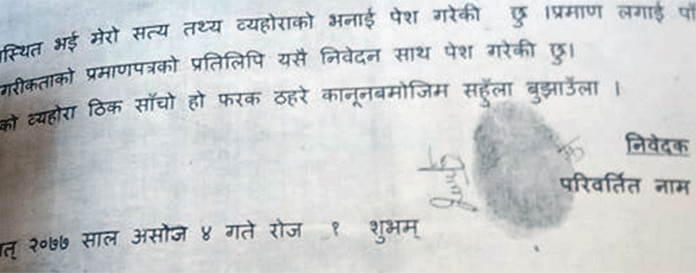 स्थित भई मेरो सत्य तथ्य व्यहोराको भनाई पेश गरेकी छु ।प्रमाण लगाई
गरीकताको प्रमाणपत्रको प्रतिलिपि यसै निवेदन साथ पेश गरेकी छु।
को व्यहोरा ठिक साँचो हो फरक ठहरे कानूनबमोजिम सहुँला बुझाउँला ।
निवेदक
परिवर्तित नाम
त् २०७७ साल असोज ४ गते रोज १ शुभम्